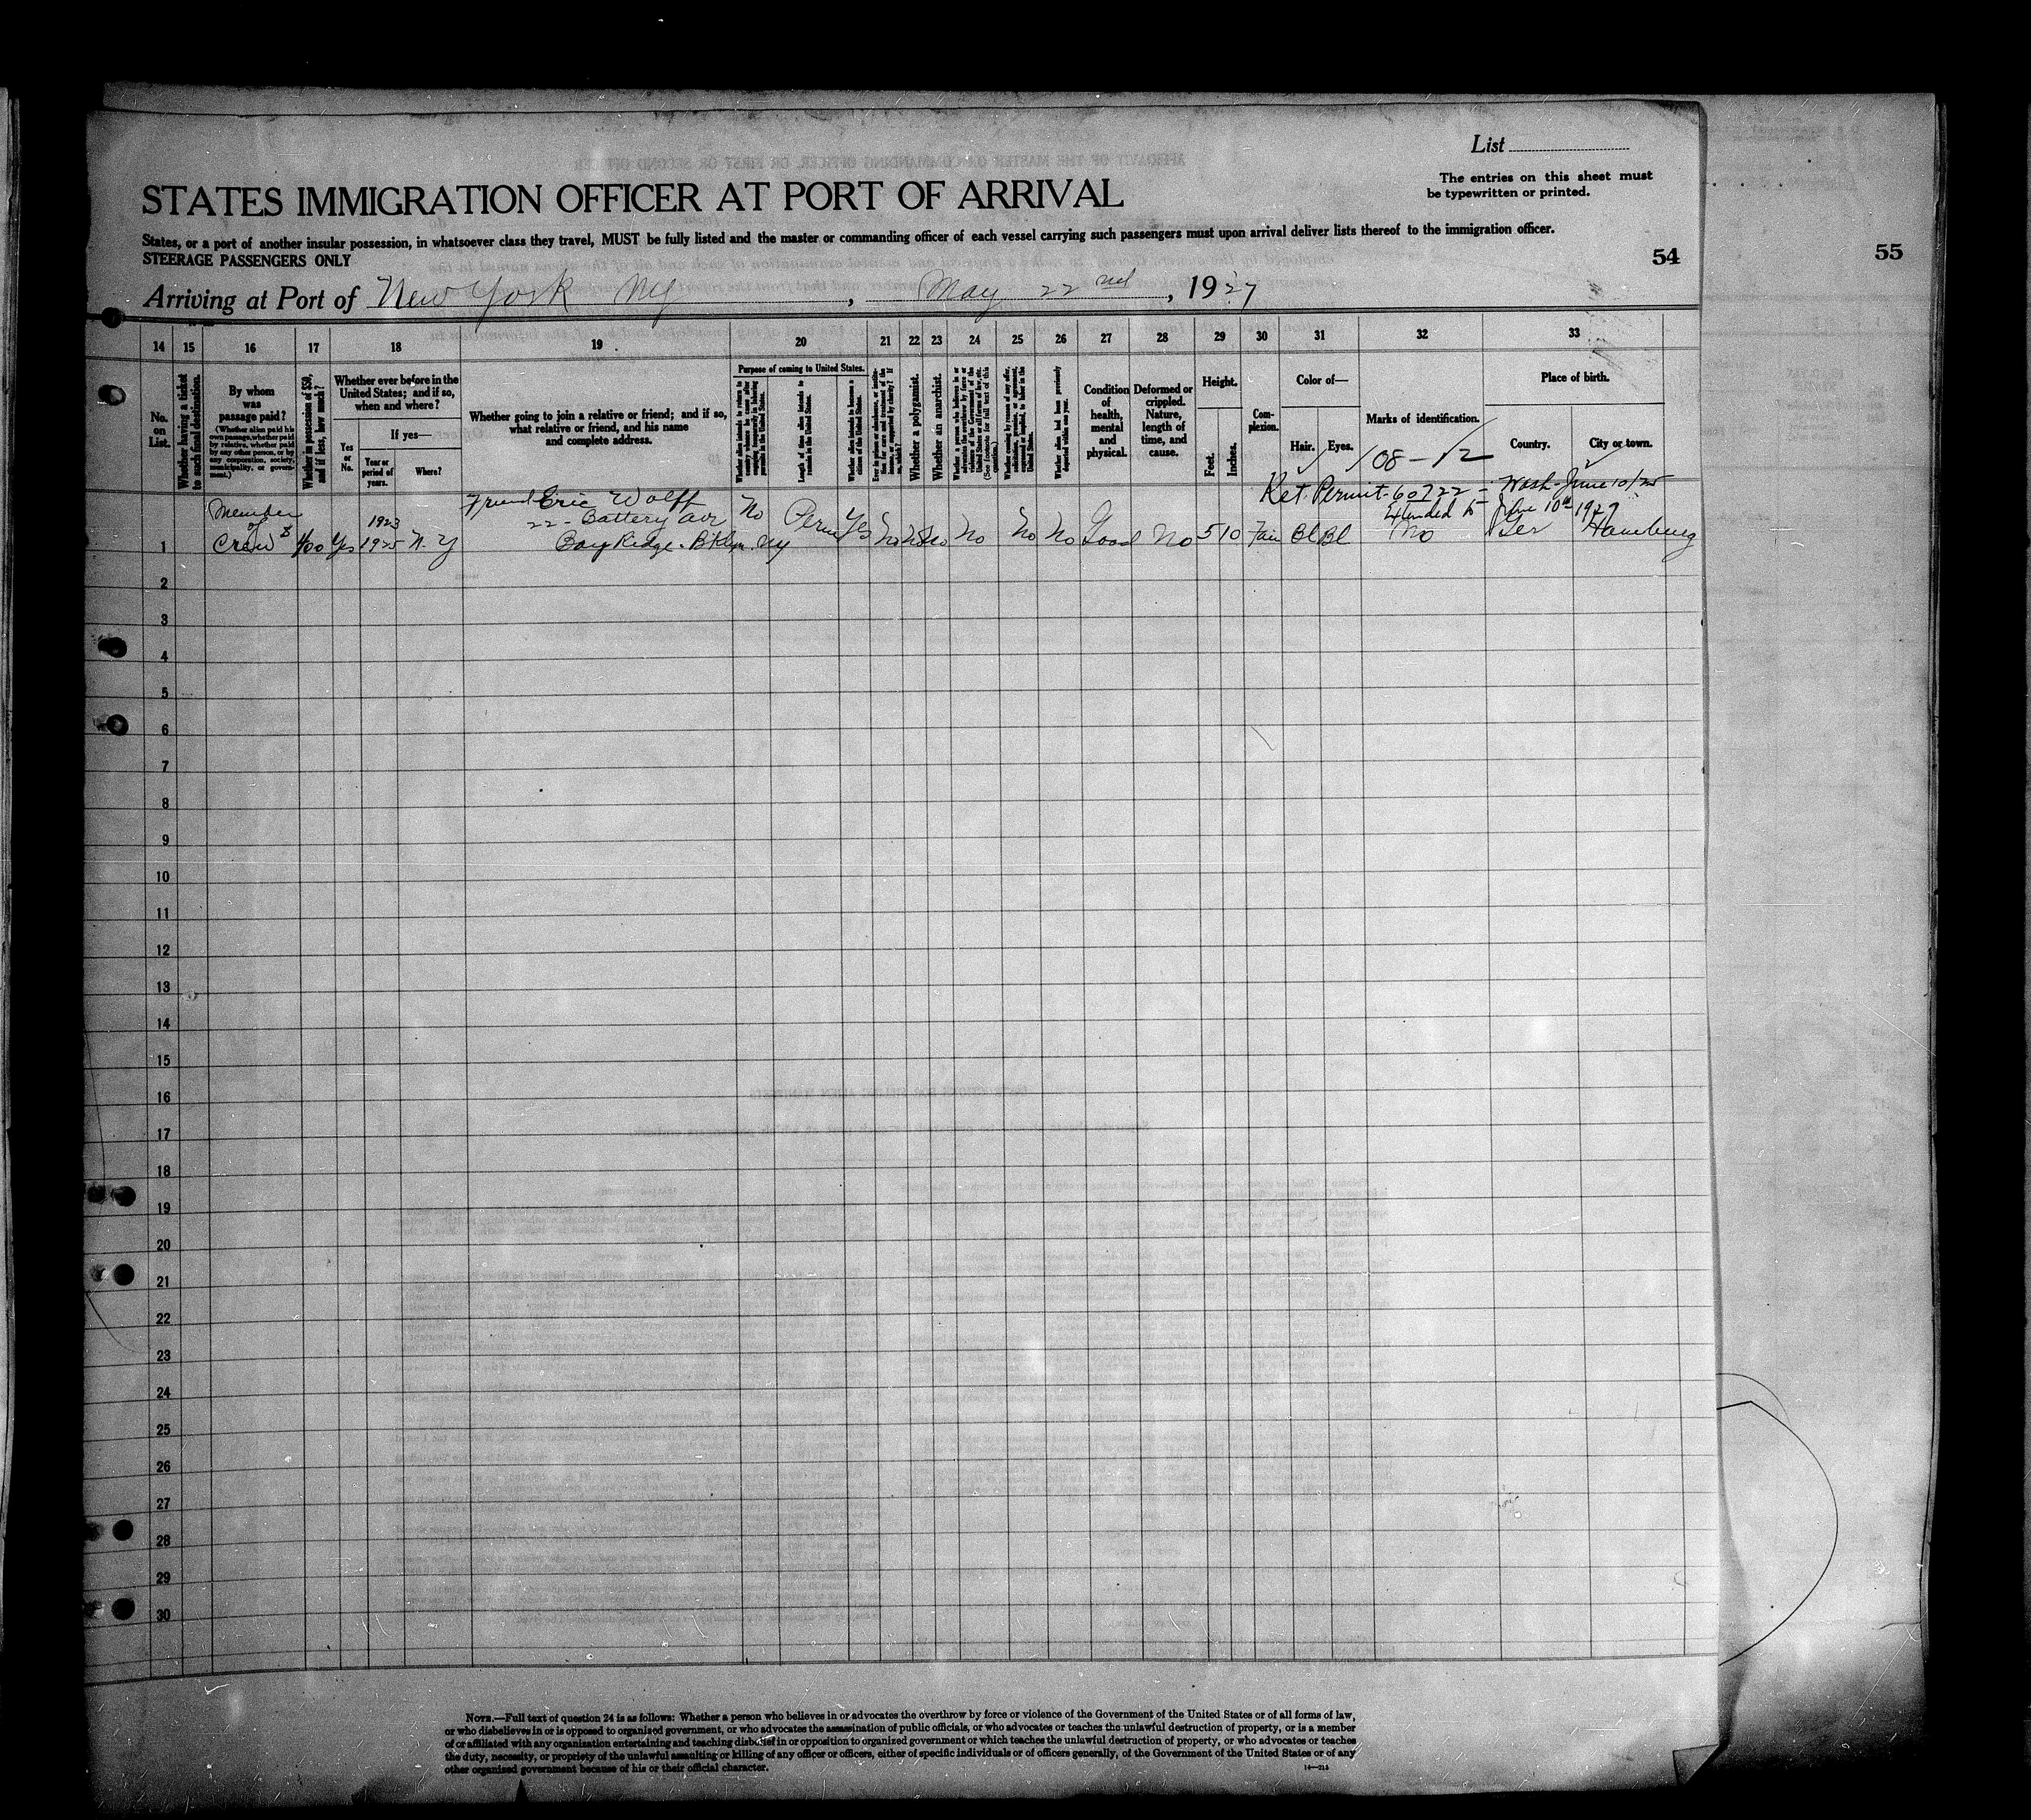 List
The entries on this sheet must
be typewritten or printed.
STATES IMMIGRATION OFFICER AT PORT OF ARRIVAL
States, or a port of another insular possession, in whatsoever class they travel, MUST be fully listed and the master or commanding officer of each vessel carrying such passengers must upon arrival deliver lists thereof to the immigration officer.
STEERAGE PASSENGERS ONLY
54
55
Arriving at Port of New York NY, May 22nd, 1927
14 15 16 17 18 19 20 21 22 23 24 25 26 27 28 29 30 31 32 33
No.
on
List.
Whether having a ticket
to such final destination.
By whom
was
passage paid?
(Whether alien paid his
own passage, whether paid
by relative, whether paid
by any other person, or by
any corporation, society,
municipality, or govern-
ment.)
Whether in possession of $50,
and if less, how much?
Whether ever before in the
United States; and if so,
when and where?
Yes
or
No.
If yes—
Year or
period of
years.
Where?
Whether going to join a relative or friend; and if so,
what relative or friend, and his name
and complete address.
Purpose of coming to United States.
Whether alien intends to return to
country whence he came after
engaging temporarily in laboring
pursuits in the United States.
Length of time alien intends to
remain in the United States.
Whether alien intends to become a
citizen of the United States.
Whether a polygamist.
Whether an anarchist.
(See footnote for full text of this
question.)
Whether alien had been previously
deported within one year.
Condition
of
health,
mental
and
physical.
Deformed or
crippled.
Nature,
length of
time, and
cause.
Height.
Feet.
Inches.
Com-
plexion.
Color of—
Hair.
Eyes.
Marks of identification.
Place of birth.
Country.
City or town.
108-12
Ret. Permit-60722- Wash-June 10/25
Extended to June 10th 1927
1 Member of Crew $ 400 Yes 1923 1925 N.Y
Friend Eric Wolff
22- Battery Ave
Bay Ridge. Bklyn. NY
No Perm Yes No No No No No No Good No 5 10 Fair Bl Bl No Ger Hamburg
2
3
4
5
6
7
8
9
10
11
12
13
14
15
16
17
18
19
20
21
22
23
24
25
26
27
28
29
30
NOTE.—Full text of question 24 is as follows: Whether a person who believes in or advocates the overthrow by force or violence of the Government of the United States or of all forms of law,
or who disbelieves in or is opposed to organized government, or who advocates the assassination of public officials, or who advocates or teaches the unlawful destruction of property, or is a member
of or affiliated with any organization entertaining and teaching disbelief in or opposition to organized government or which teaches the unlawful destruction of property, or who advocates or teaches
the duty, necessity, or propriety of the unlawful assaulting or killing of any officer or officers, either of specific individuals or of officers generally, of the Government of the United States or of any
other organized government because of his or their official character.